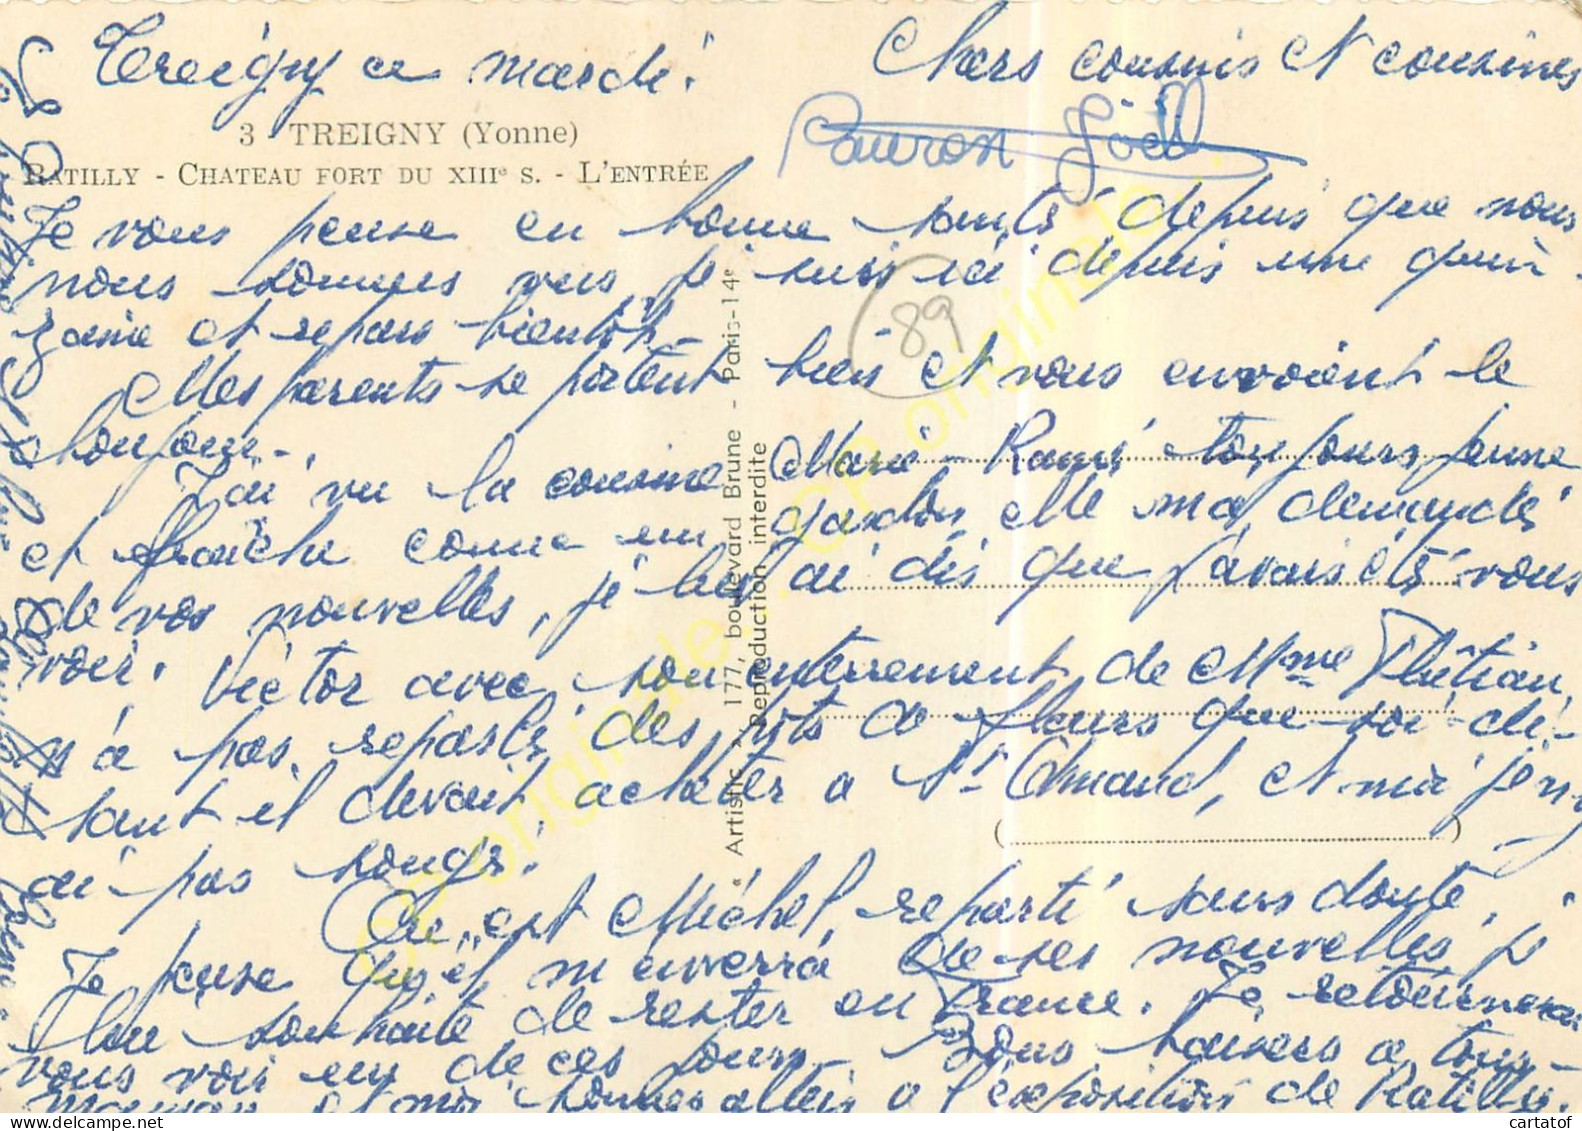 Treigny ce mardi.
Chers cousins et cousines
3 TREIGNY (Yonne)
RATILLY - CHATEAU FORT DU XIIIe S. - L'ENTRÉE
Pauron Joël
Je vous pense en bonne santé depuis que nous
nous sommes vus, je suis ici depuis une quin-
zaine et repars bientôt.
89
Mes parents se portent bien et vous envoient le
bonjour.
J'ai vu la cousine Marie-Rami toujours jeune
et fraiche comme un gardon, elle m'a demandé
de vos nouvelles, je lui ai dis que j'avais été vous
voir. Victor avec son enterrement de Mme Thétian
n'a pas reparlé des pots de fleurs que soi-di-
sant il devait acheter a St Amand, et moi je n'y
ai pas songé.
Ou est Michel, reparti sans doute,
Je pense qu'il m'enverra de ses nouvelles je
lui souhaite de rester en France. Je retournerai
vous voir un de ces jours. Bons baisers a tous-
maman et moi sommes allés a l'exposition de Ratilly.
« Artistic », 177, boulevard Brune - Paris-14e
Reproduction interdite
cartatof